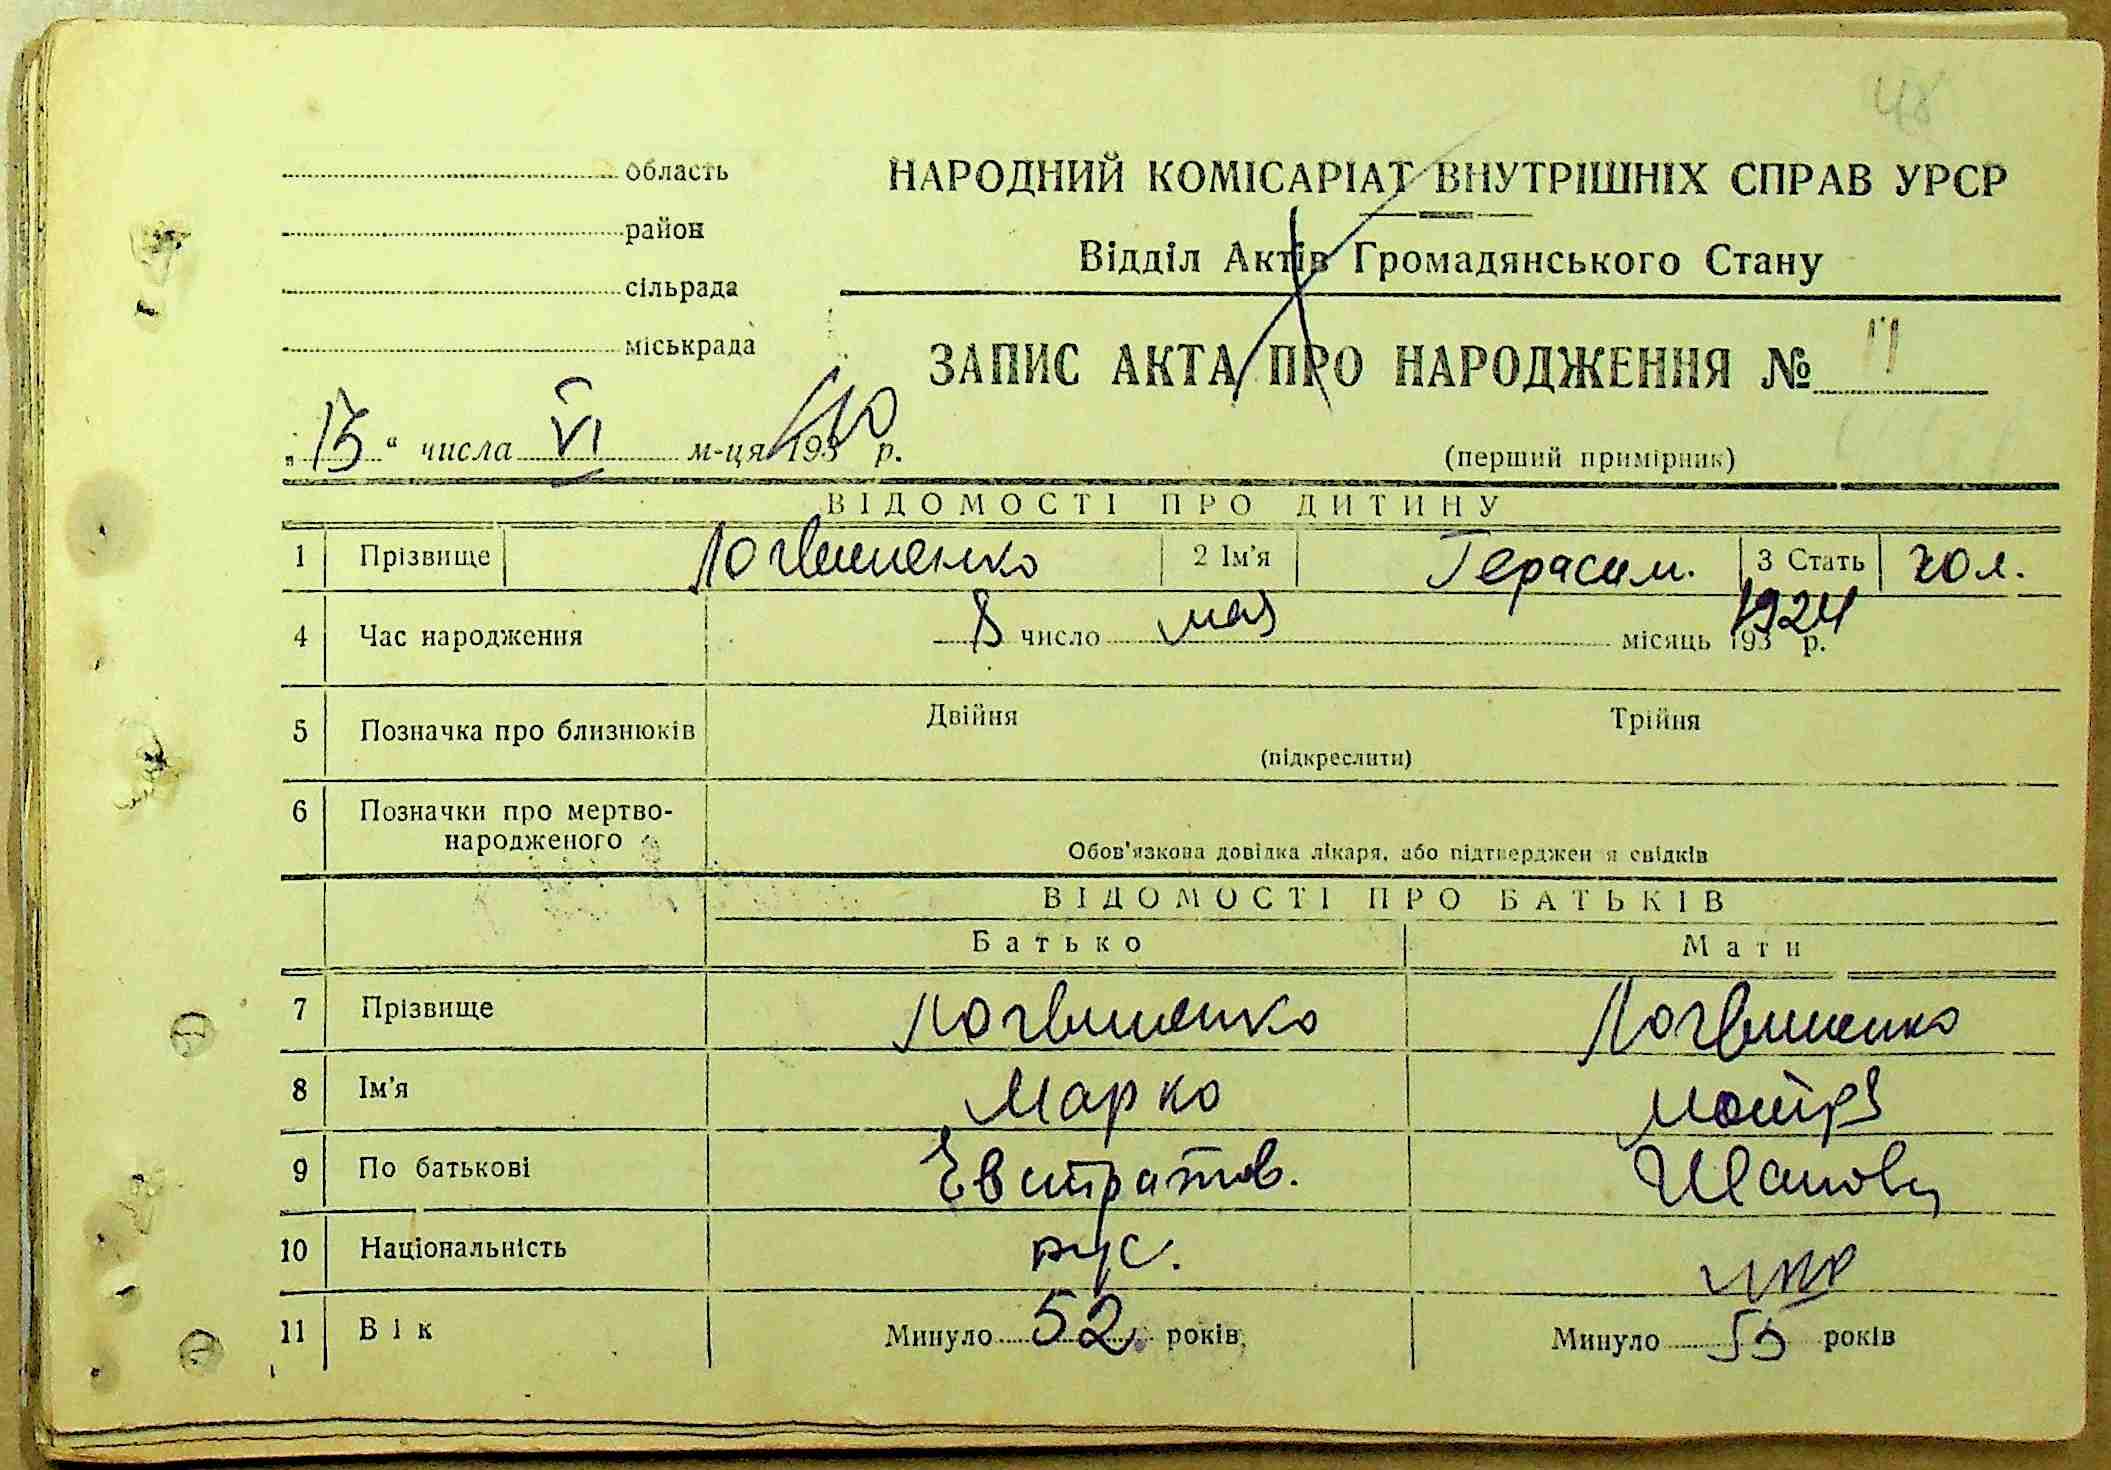 48
область
район
сільрада
міськрада
НАРОДНИЙ КОМІСАРІАТ ВНУТРІШНІХ СПРАВ УРСР
Відділ Актів Громадянського Стану
ЗАПИС АКТА ПРО НАРОДЖЕННЯ № 11
„15“ числа VI м-ця 1940 р.
(перший примірник)
ВІДОМОСТІ ПРО ДИТИНУ
1 Прізвище Логвиненко 2 Ім'я Герасим. 3 Стать чол.
4 Час народження 8 число мая місяць 193 1924 р.
5 Позначка про близнюків Двійня Трійня
(підкреслити)
6 Позначки про мертво-
народженого
Обов'язкова довідка лікаря, або підтвержден я свідків
ВІДОМОСТІ ПРО БАТЬКІВ
Батько Мати
7 Прізвище Логвиненко Логвиненко
8 Ім'я Марко Мотря
9 По батькові Евстратов. Ивановн
10 Національність рус. укр
11 Вік Минуло 52. років, Минуло 53 років